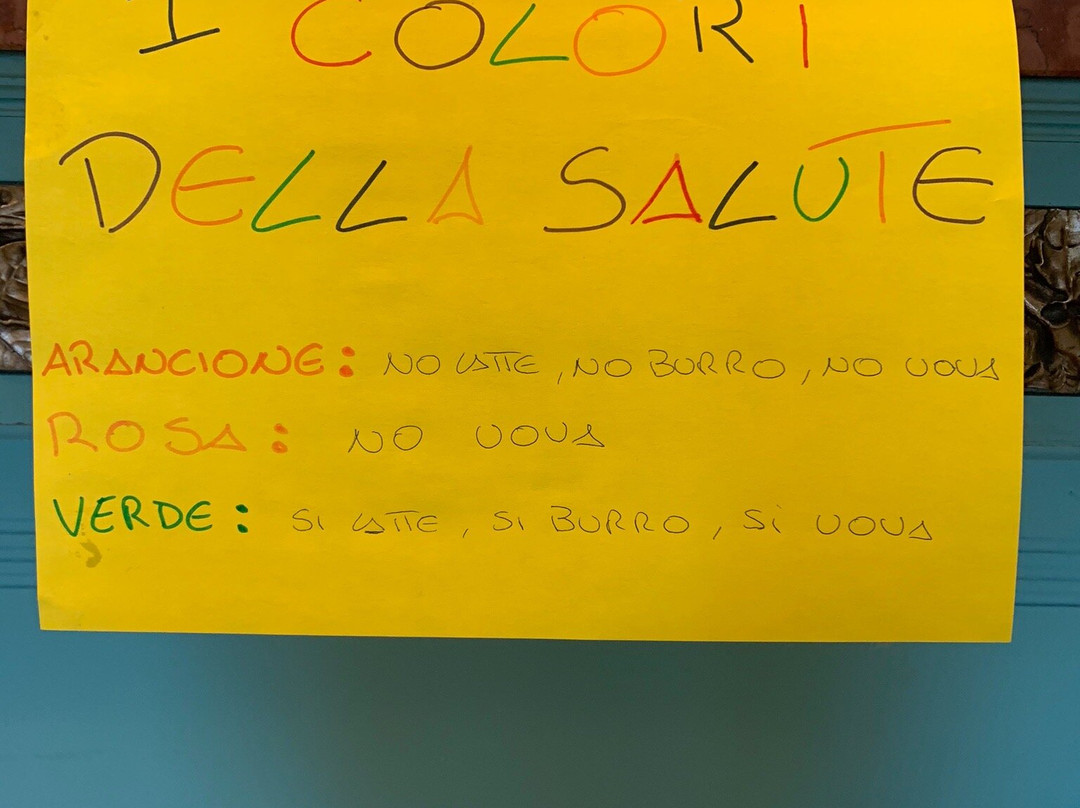 I COLORI
DELLA SALUTE
ARANCIONE: NO LATTE, NO BURRO, NO UOVA
ROSA: NO UOVA
VERDE: SI LATTE, SI BURRO, SI UOVA